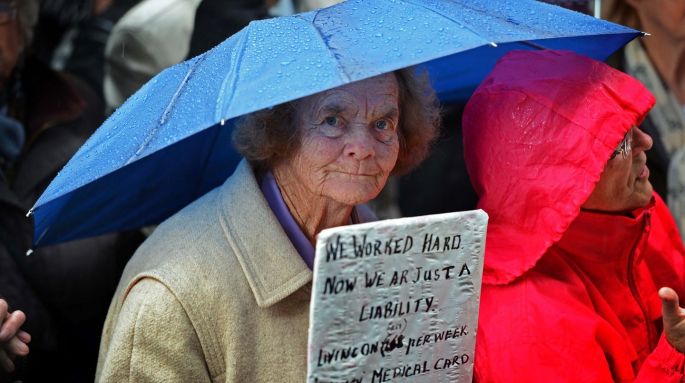 WE WORKED HARD.
NOW WE AR JUST A
LIABILITY.
LIVING ON PER WEEK
MEDICAL CARD